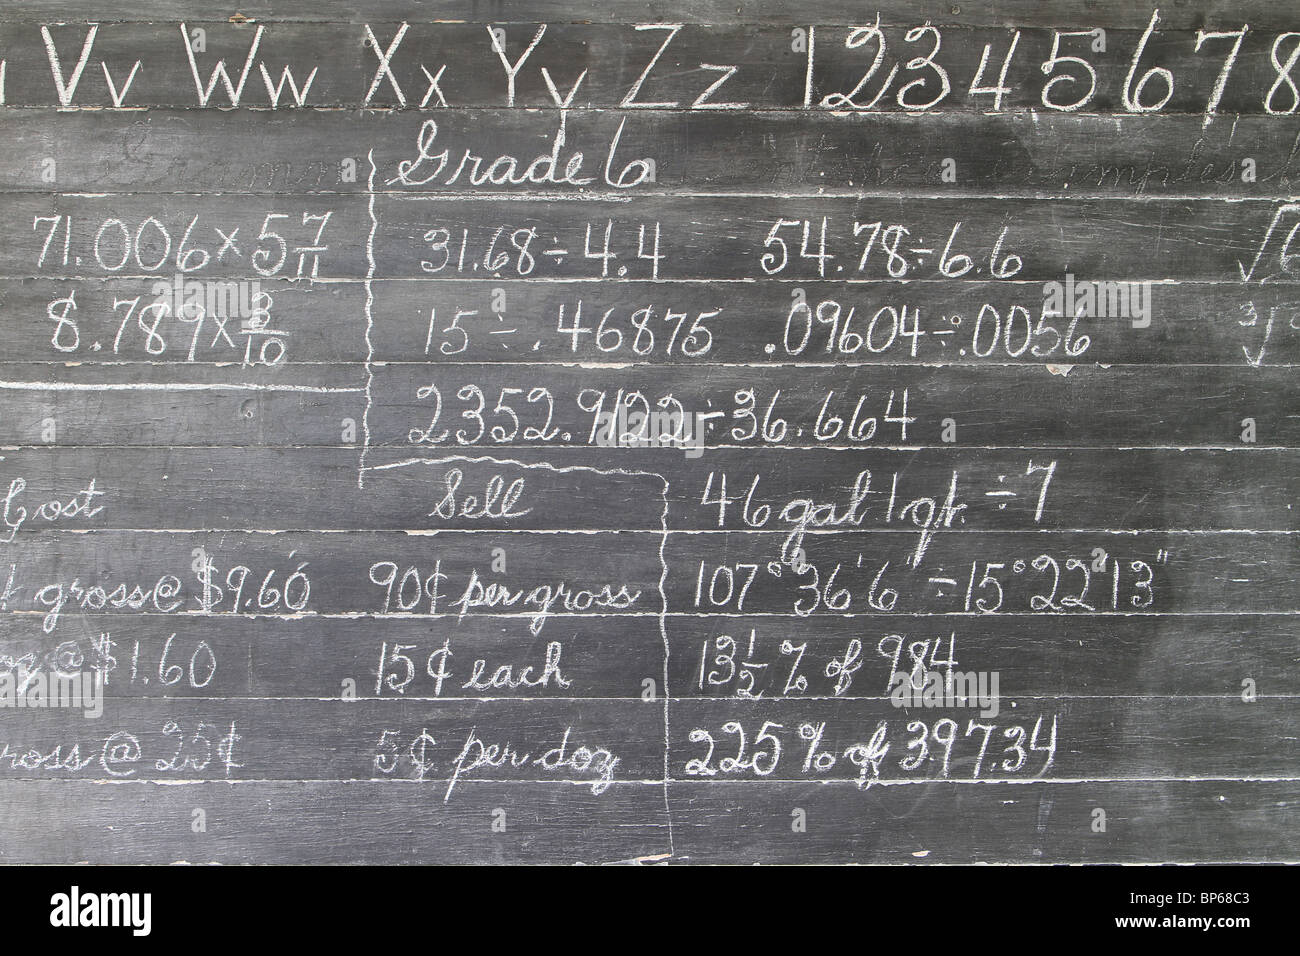 Vv Ww Xx Yy Zz 12345678
Grade 6
71.006 × 5 7/11
31.68 ÷ 4.4
54.78 ÷ 6.6
8.789 × 3/10
15 ÷ .46875
.09604 ÷ .0056
2352.9122 ÷ 36.664
Cost
Sell
46 gal 1 qt. ÷ 7
gross @ $9.60
90¢ per gross
107° 36' 6" ÷ 15° 22' 13"
@ $1.60
15¢ each
13 1/2 % of 984
@ 25¢
5¢ per doz
225% of 397.34
alamy
Image ID: BP68C3
www.alamy.com